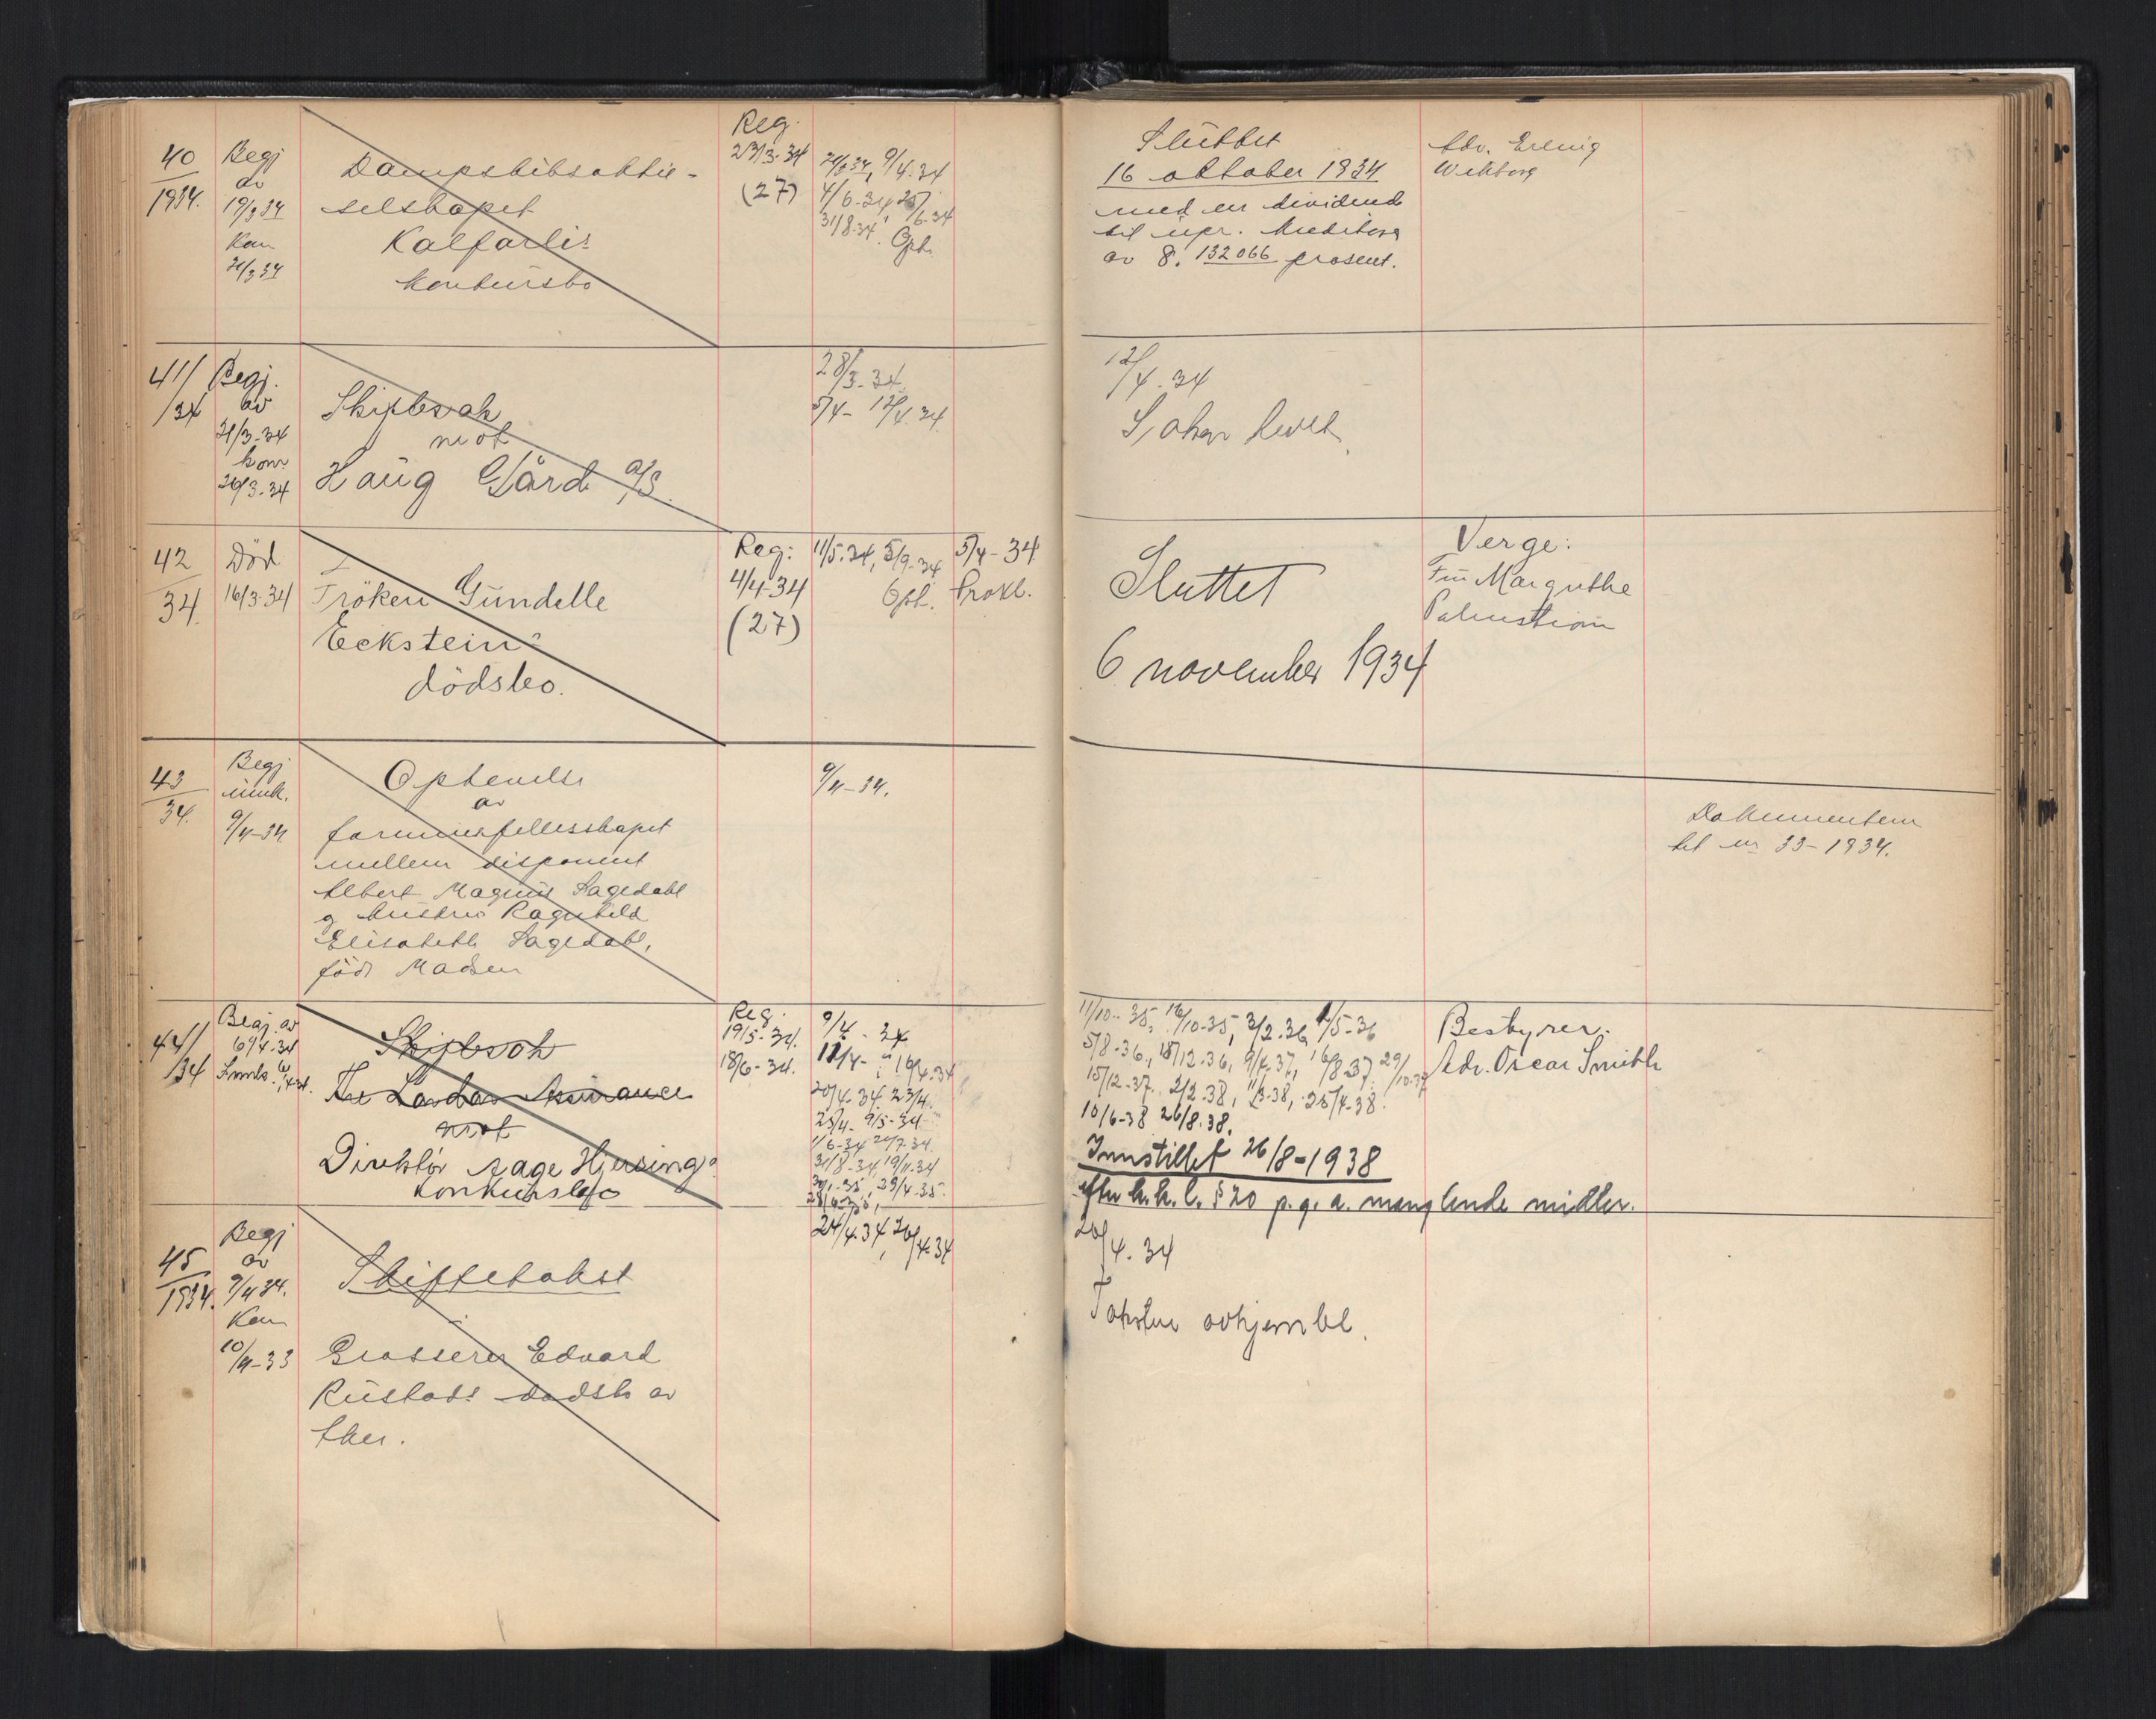 40
1934.
Begj
av
19/3 34
Kon
21/3 34
Dampskibsaktie-
selskapet
Kalfarlis
konkursbo
Reg.
23/3-34
(27)
9/4-34
4/6-34
31/8-34
Slüttet
16 oktober 1934
med en dividende
til upr. kreditorer
av 8.132066 prosent.
Adv. Erling
Wikborg
41/
/34
Begj.
av
21/3-34
kom.
26/3-34
Skiftesak
mot
Haug Gård A/S.
28/3-34
5/4- 12/4-34
12/4-34
Saken hevet
42
34.
Död
16/3-34
Fröken Gündelle
Eckstein's
dödsbo.
Reg:
4/4-34
(27)
11/5-34, 5/9-34
5/4-34
Prokl.
Sluttet
6 november 1934
Verge:
Frü Margrethe
Palmstrøm
43
34.
Begj
innk.
9/4-34
Ophevelse
av
formuesfellesskapet
mellem disponent
Albert Magnus Sagedahl
og hustru Ragnhild
Elisabeth Sagedahl,
född Madsen
9/4-34.
Dokumentene
til nr 33-1934.
44/
/34
Begj. av
6/4-34
Skiftesak
The London Assurance
mot
Direktør Aage Hjersing's
konkursbo
Reg.
19/5-34.
18/6-34.
9/4-34
20/4-34 23/4
25/4- 9/5-34
31/8-34, 19/11-34
29/4-35.
11/10-35, 16/10-35, 3/2-36, 4/5-36
5/8-36, 18/12-36, 9/4-37, 16/8-37 29/10-37
15/12-37. 2/2-38, 1/3-38, 25/4-38.
10/6-38 26/8-38.
Innstillet 26/8-1938
efter k.k.l. § 20 p.g.a. manglende midler.
Bestyrer:
Adv. Oscar Smith
45
1934.
Begj
av
9/4 34.
Kom
10/4-33
Skiftetakst
i
Grosserer Edvard
Rustads dødsbo av
Aker.
24/4-34, 26/4-34
26/4-34
Taksten avhjemlet.